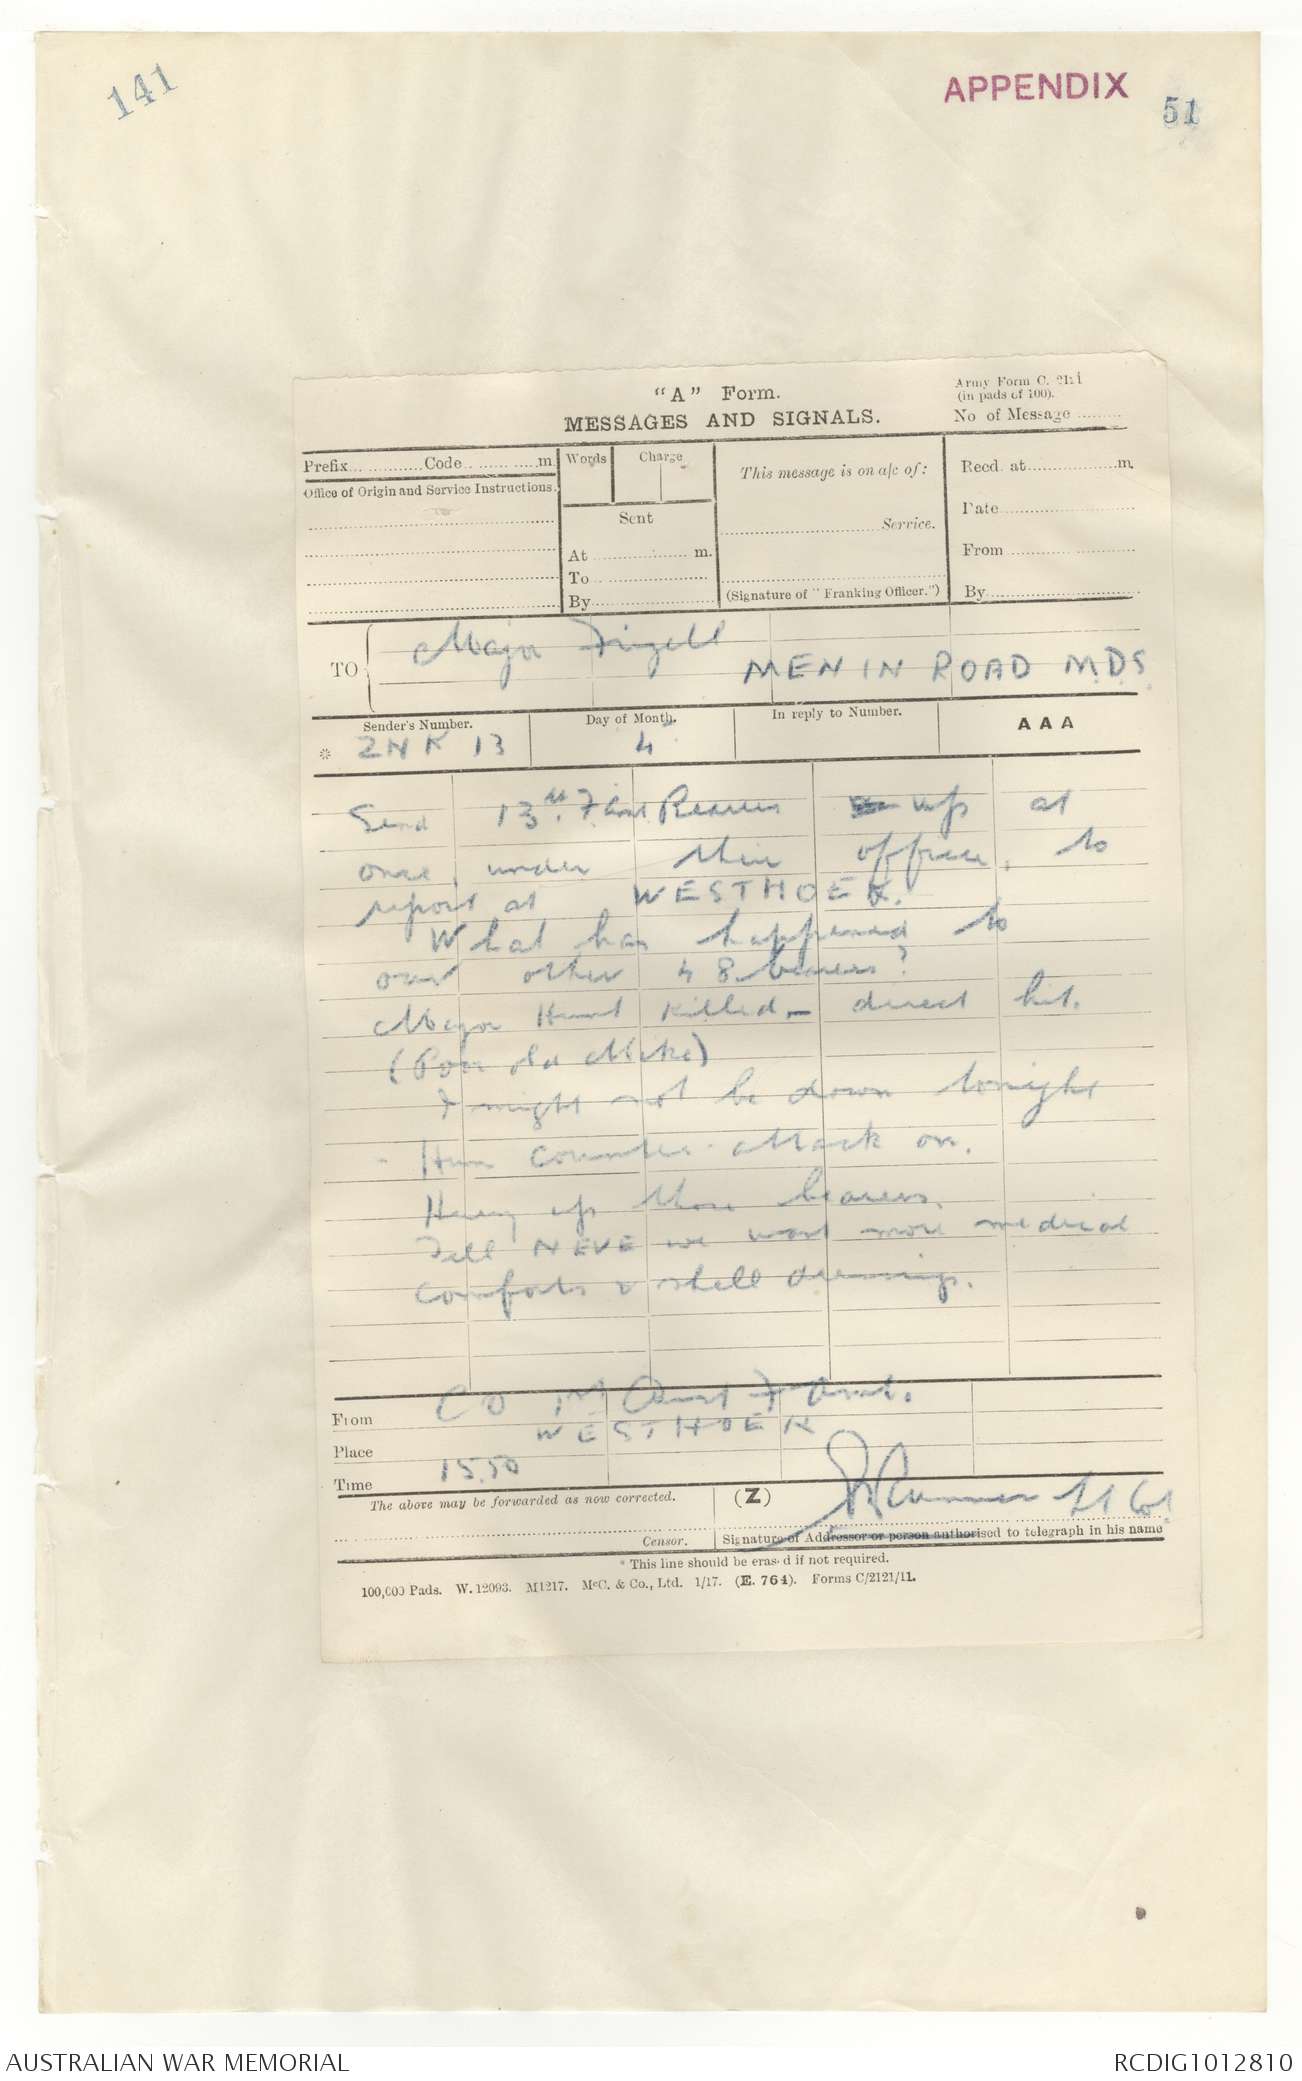 141
APPENDIX
51
"A" Form.
MESSAGES AND SIGNALS.
Army Form C. 2121
(in pads of 100).
No of Message
Prefix Code m.
Words Charge
This message is on a/c of:
Recd. at m.
Office of Origin and Service Instructions.
Sent
Service.
Date
At m.
From
To
By
(Signature of "Franking Officer.")
By
TO Major Frizell
MENIN ROAD M.D.S.
Sender's Number. Day of Month. In reply to Number. AAA
* ZNK 13 4
Send 13th F Amb Bearers up at
once, under their officer, to
report at WESTHOEK.
What has happened to
our other 48 bearers?
Major Hunt killed - direct hit.
(Poor old Mike)
I might not be down tonight
- Hun counter-attack on.
Hurry up those bearers.
Tell NEVE we want more medical
comforts & shell dressings.
From CO 1st Aust F Amb.
Place WESTHOEK
Time 15.50
The above may be forwarded as now corrected. (Z)
Lt Col
Censor. Signature of Addressor or person authorised to telegraph in his name
* This line should be erased if not required.
100,000 Pads. W. 12093. M1217. McC. & Co., Ltd. 1/17. (E. 764). Forms C/2121/11.
AUSTRALIAN WAR MEMORIAL
RCDIG1012810